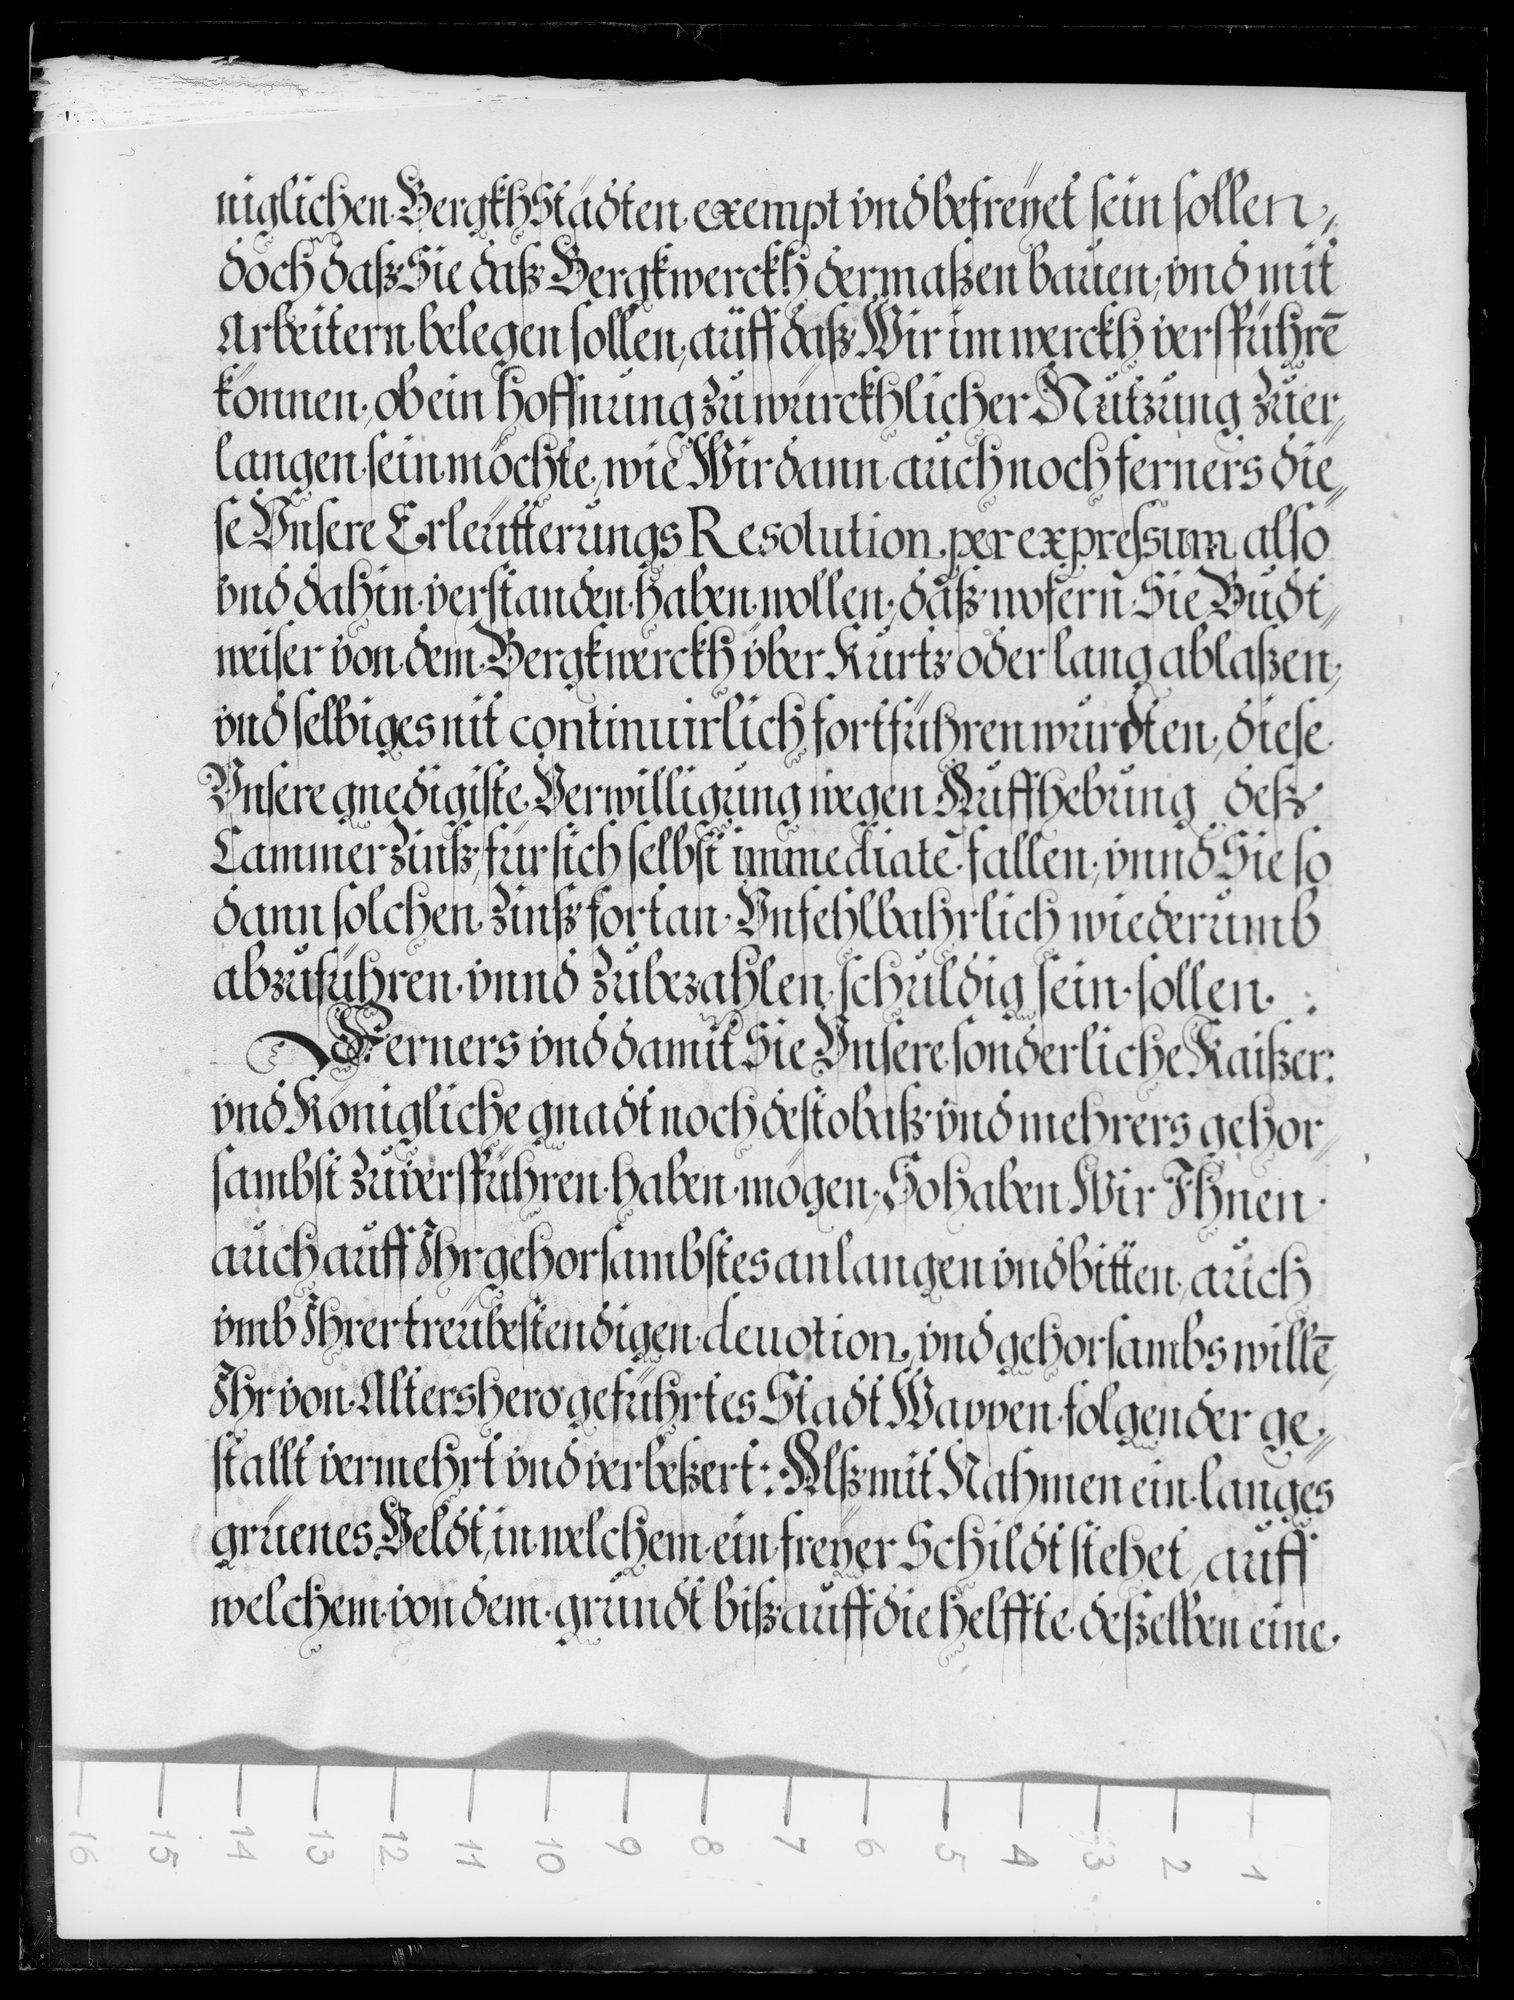 niglichen BergkhStädten exempt vnd befreÿet sein sollen,
doch daß Sie daß Bergkwerckh dermaßen bauen, vnd mit
Arbeitern belegen sollen, auff daß Wir im werckh verspührē
können, ob ein hoffnung zu würckhlicher Nutzung zuer-
langen sein möchte, wie Wir dann auch noch ferners die-
se Vnsere Erleütterungs Resolution per expressum also
vnd dahin verstanden haben wollen, daß wofern Sie Budt-
weiser von dem Bergkwerckh vber Kurtz oder lang ablaßen,
vnd selbiges nit continuirlich fortführen wurdten, diese
Vnsere gnedigiste Verwilligung wegen Auffhebung deß
Cammer Zinß, für sich selbst immediatè fallen, vnnd Sie so
dann solchen Zinß fortan Vnfehlbahrlich wiederumb
abzuführen vnnd Zubezahlen schuldig sein sollen.
Ferners vnd damit Sie Vnsere sonderliche Kaißer:
vnd Königliche gnadt noch destobaß vnd mehrers gehor-
sambst zuverspühren haben mögen, So haben Wir Ihnen
auch auff Ihr gehorsambstes anlangen vnd bitten, auch
vmb Ihrer treübestendigen deuotion, vnd gehorsambs willē
Ihr von Altershero geführtes Stadt Wappen folgender ge-
stallt vermehrt vnd verbeßert: Alß mit Nahmen ein langes
grüenes Veldt, in welchem ein freÿer Schildt stehet, auff
welchem von dem grundt biß auff die helffte deßelben eine
16 15 14 13 12 11 10 9 8 7 6 5 4 3 2 1